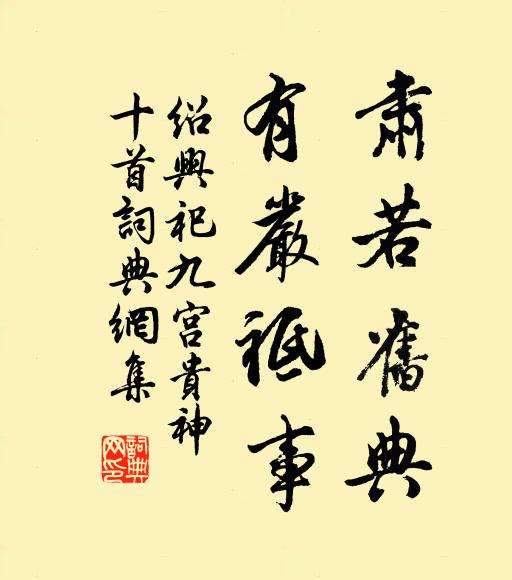 肅若舊典
有嚴祗事
紹興祀九宮貴神
十首詞典網集
詞典
网印